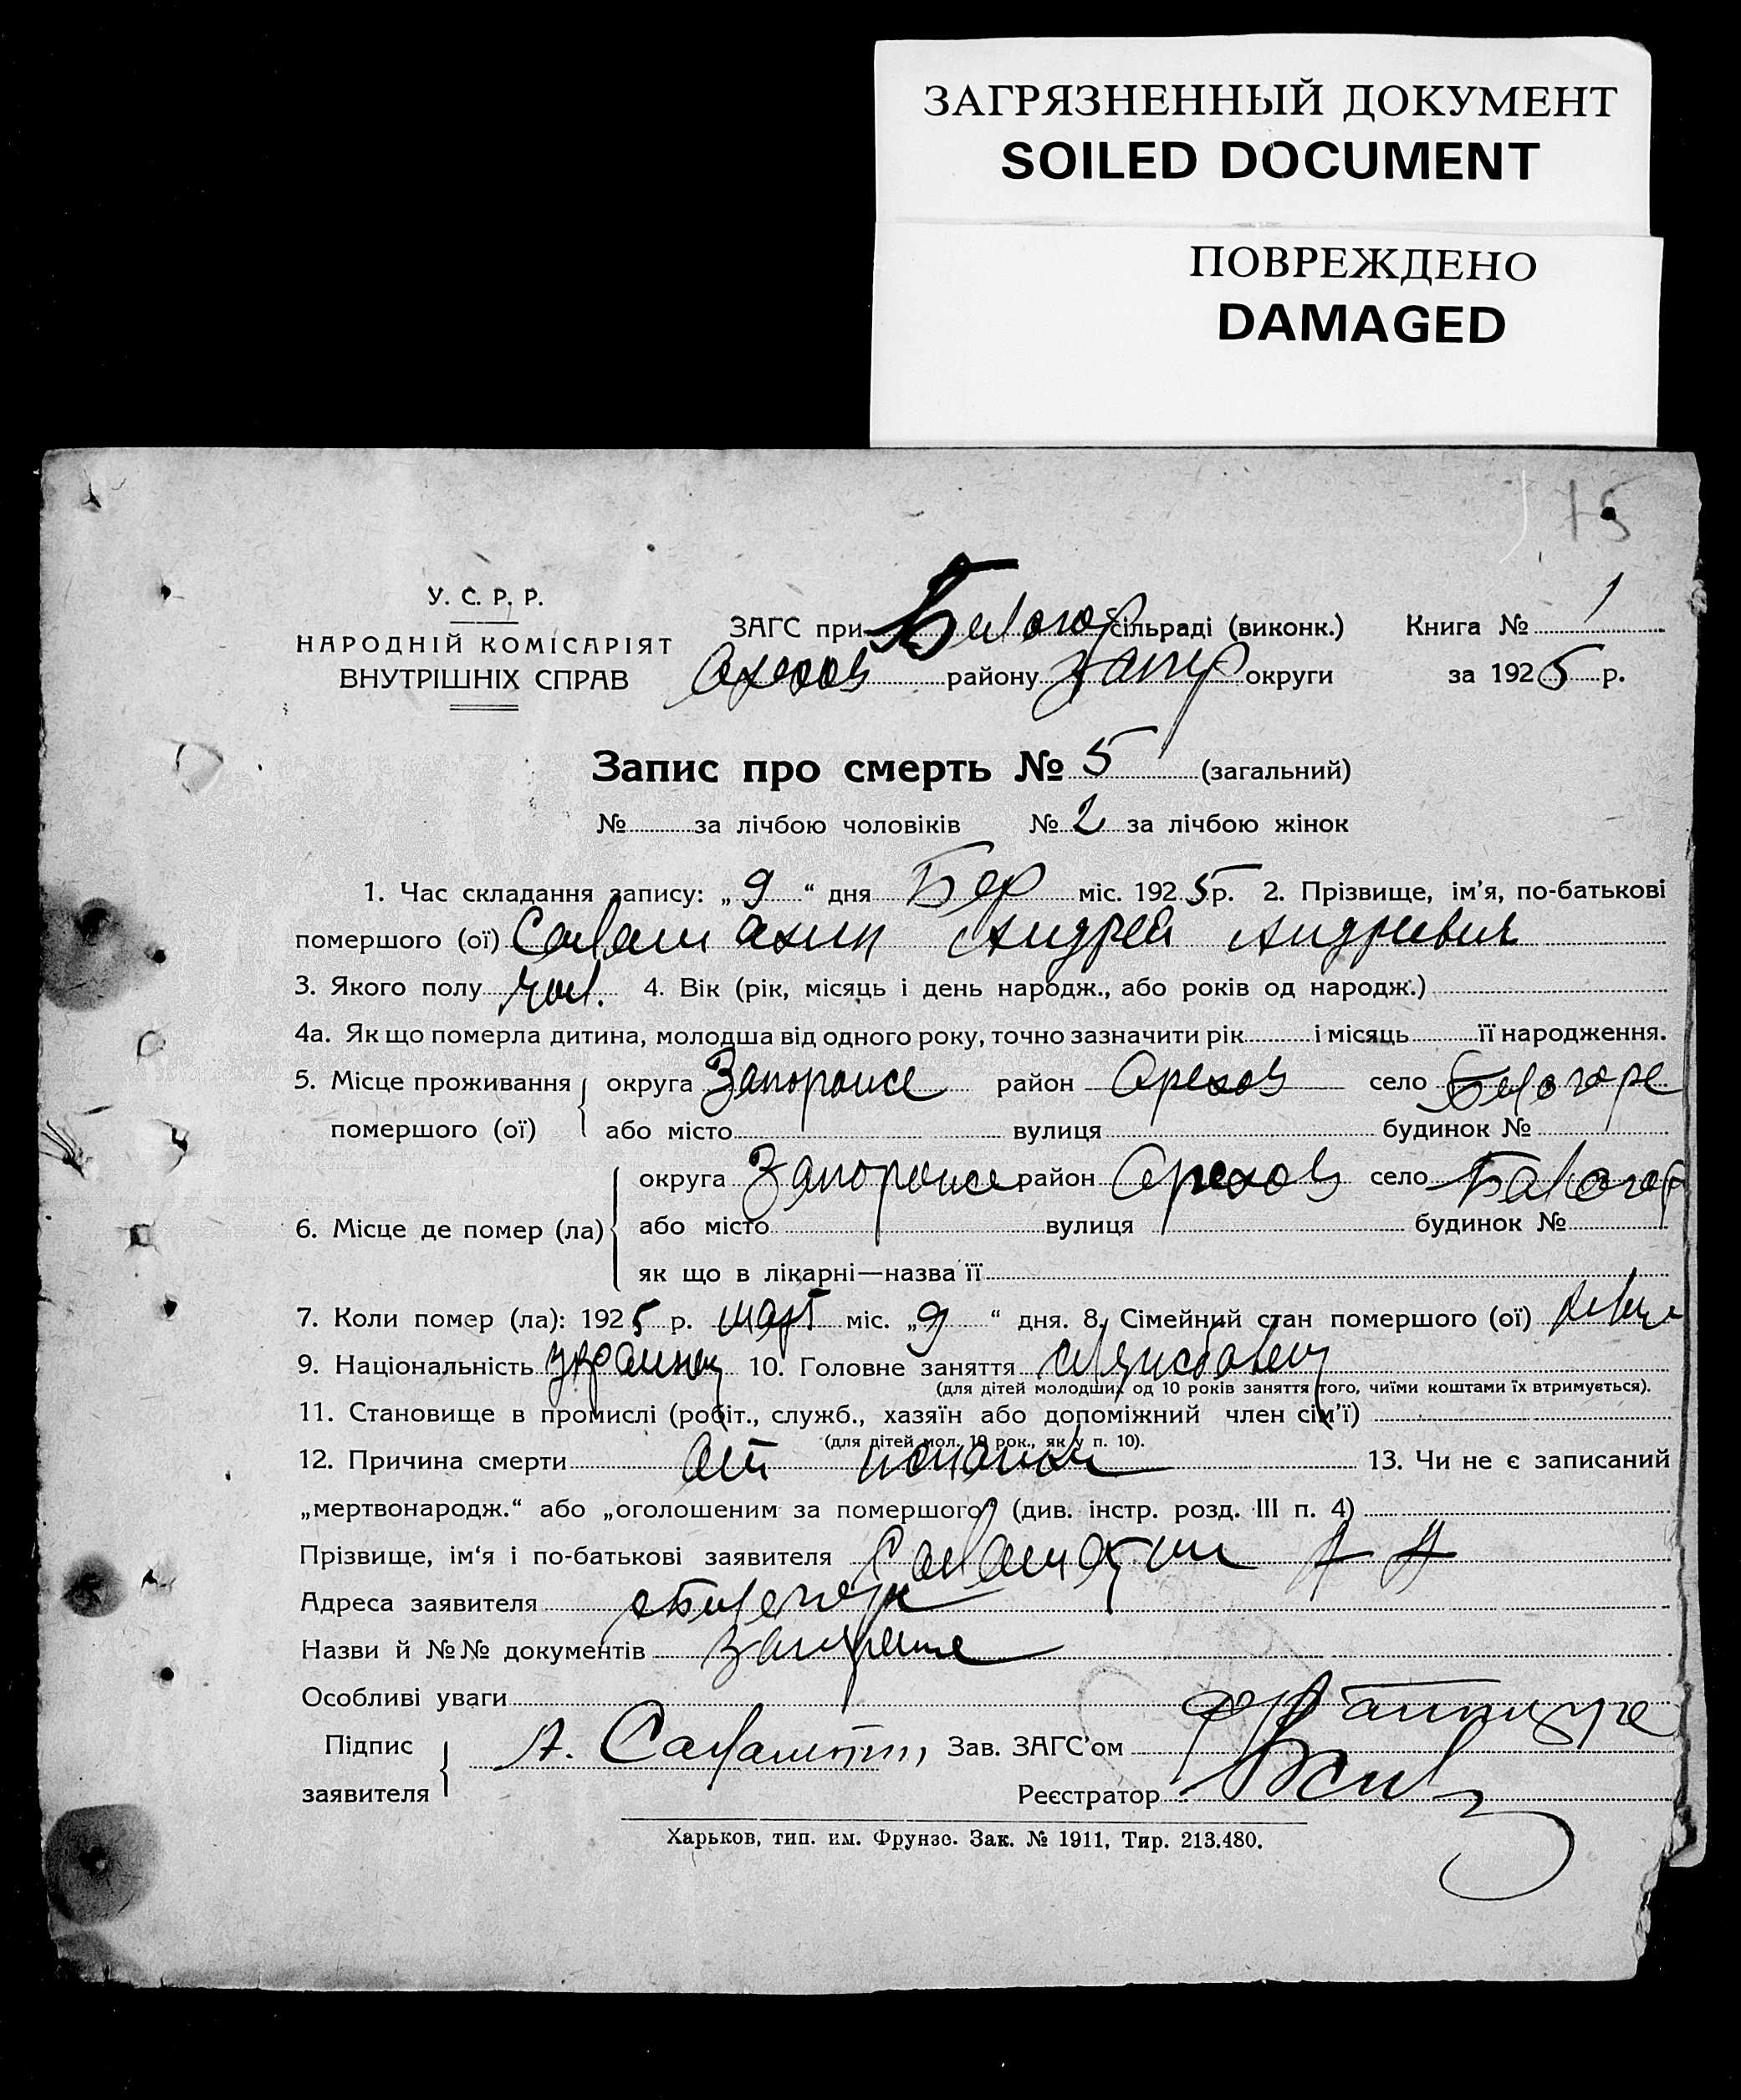 ЗАГРЯЗНЕННЫЙ ДОКУМЕНТ
SOILED DOCUMENT
ПОВРЕЖДЕНО
DAMAGED
75
У. С. Р. Р.
НАРОДНІЙ КОМІСАРІЯТ
ВНУТРІШНІХ СПРАВ
ЗАГС при Белогор сільраді (виконк.) Книга № 1
району Запор округи за 1925 р.
Запис про смерть № 5 (загальний)
№ за лічбою чоловіків № 2 за лічбою жінок
1. Час складання запису: „9“ дня Бер міс. 1925 р. 2. Прізвище, ім'я, по-батькові
помершого (ої) Андрей Андриевич
3. Якого полу чол. 4. Вік (рік, місяць і день народж., або років од народж.)
4а. Як що померла дитина, молодша від одного року, точно зазначити рік і місяць її народження.
5. Місце проживання округа Запорожье район Орехов село Белогоре
помершого (ої) або місто вулиця будинок №
округа Запорожье район Орехов село
6. Місце де помер (ла) або місто вулиця будинок №
як що в лікарні—назва її
7. Коли помер (ла): 1925 р. март міс. „9“ дня. 8. Сімейний стан помершого (ої)
9. Національність украинец 10. Головне заняття
(для дітей молодших од 10 років заняття того, чиїми коштами їх втримується).
11. Становище в промислі (робіт., служб., хазяїн або допоміжний член сім'ї)
(для дітей мол. 10 рок., як у п. 10).
12. Причина смерти от 13. Чи не є записаний
„мертвонародж.“ або „оголошеним за помершого“ (див. інстр. розд. III п. 4)
Прізвище, ім'я і по-батькові заявителя А А
Адреса заявителя
Назви й №№ документів
Особливі уваги
Підпис А. Зав. ЗАГС'ом
заявителя Реєстратор
Харьков, тип. им. Фрунзе. Зак. № 1911, Тир. 213.480.